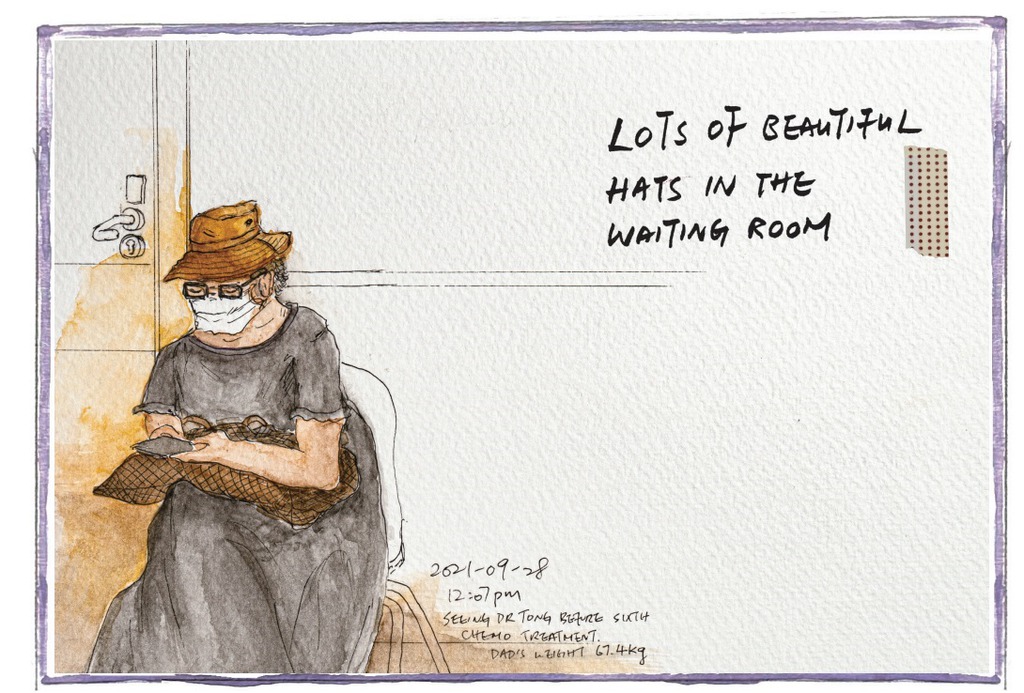 LOTS OF BEAUTIFUL
HATS IN THE
WAITING ROOM
2021-09-28
12:07pm
SEEING DR TONG BEFORE SIXTH
CHEMO TREATMENT.
DAD'S WEIGHT 67.4Kg